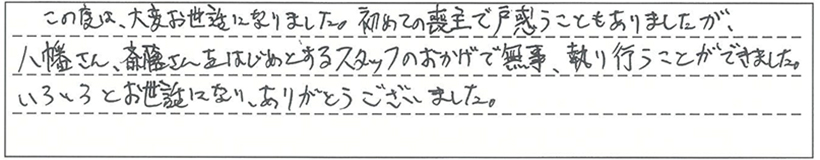 この度は、大変お世話になりました。初めての喪主で戸惑うこともありましたが、
八幡さん、斎藤さんをはじめとするスタッフのおかげで無事、執り行うことができました。
いろいろとお世話になり、ありがとうございました。